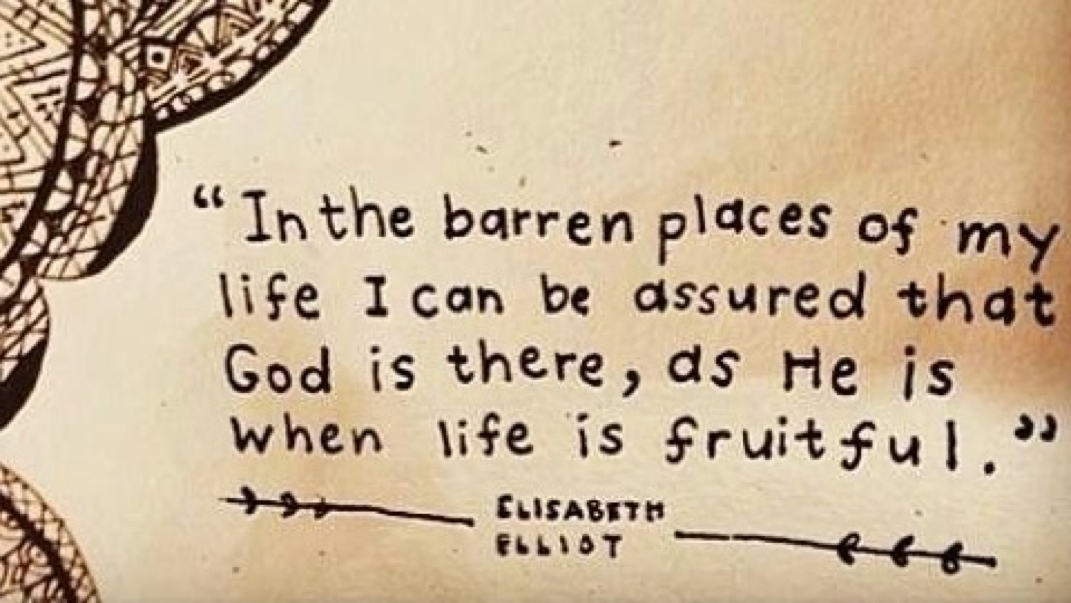 “In the barren places of my
life I can be assured that
God is there, as He is
when life is fruitful.”
ELISABETH
ELLIOT